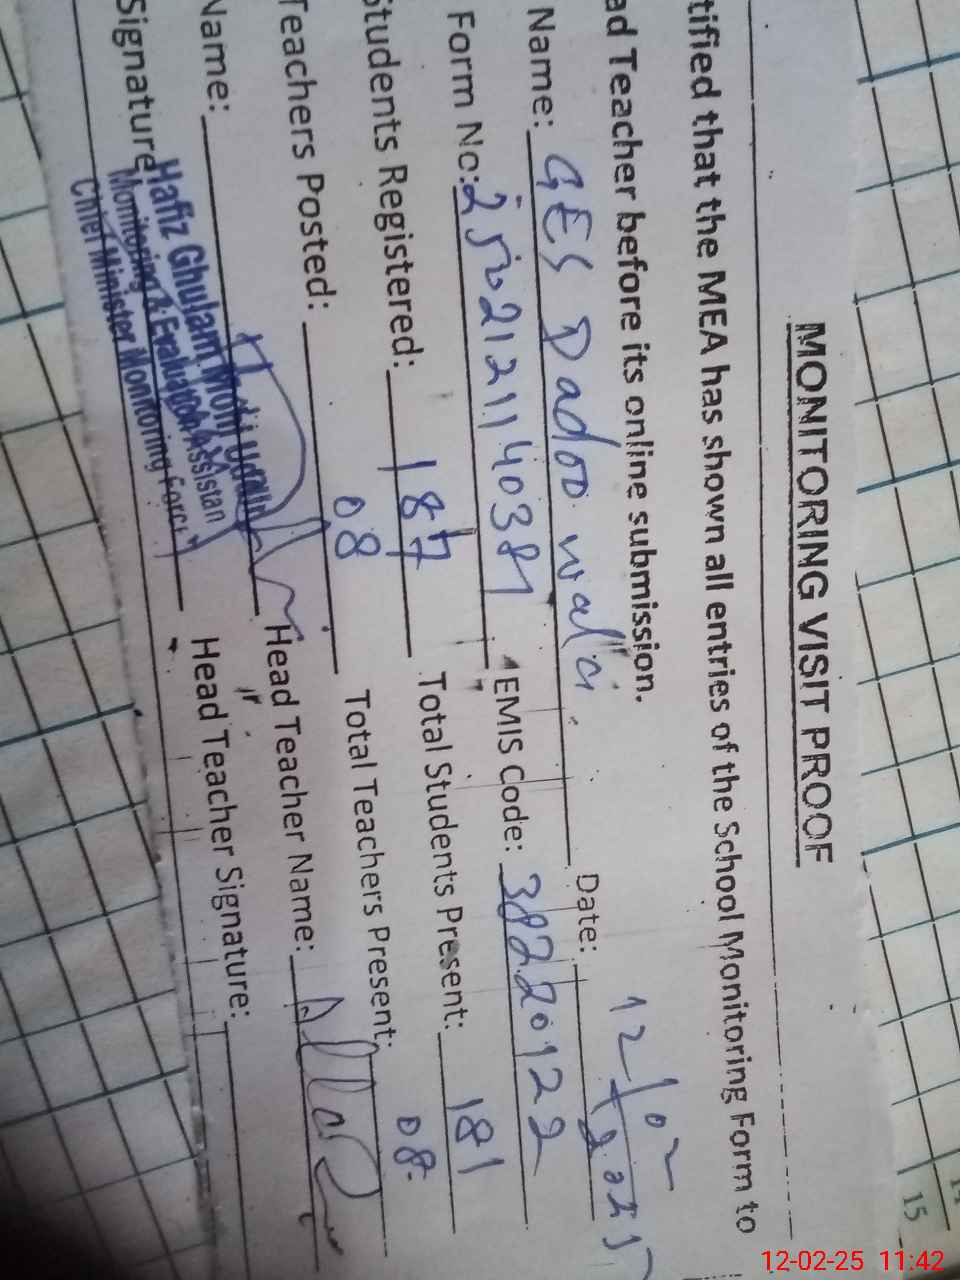 MONITORING VISIT PROOF
tified that the MEA has shown all entries of the School Monitoring Form to
ad Teacher before its online submission.
Name: GES Dadoo wali Date: 12/02/2025
Form No: 2502121140381 EMIS Code: 38220122
Students Registered: 187 Total Students Present: 181
Teachers Posted: 08 Total Teachers Present: 08
Name: Head Teacher Name:
Signature Head Teacher Signature:
Hafiz Ghulam
Monitoring & Evaluation Assistan
Chief Minister Monitoring Force
15
12-02-25 11:42